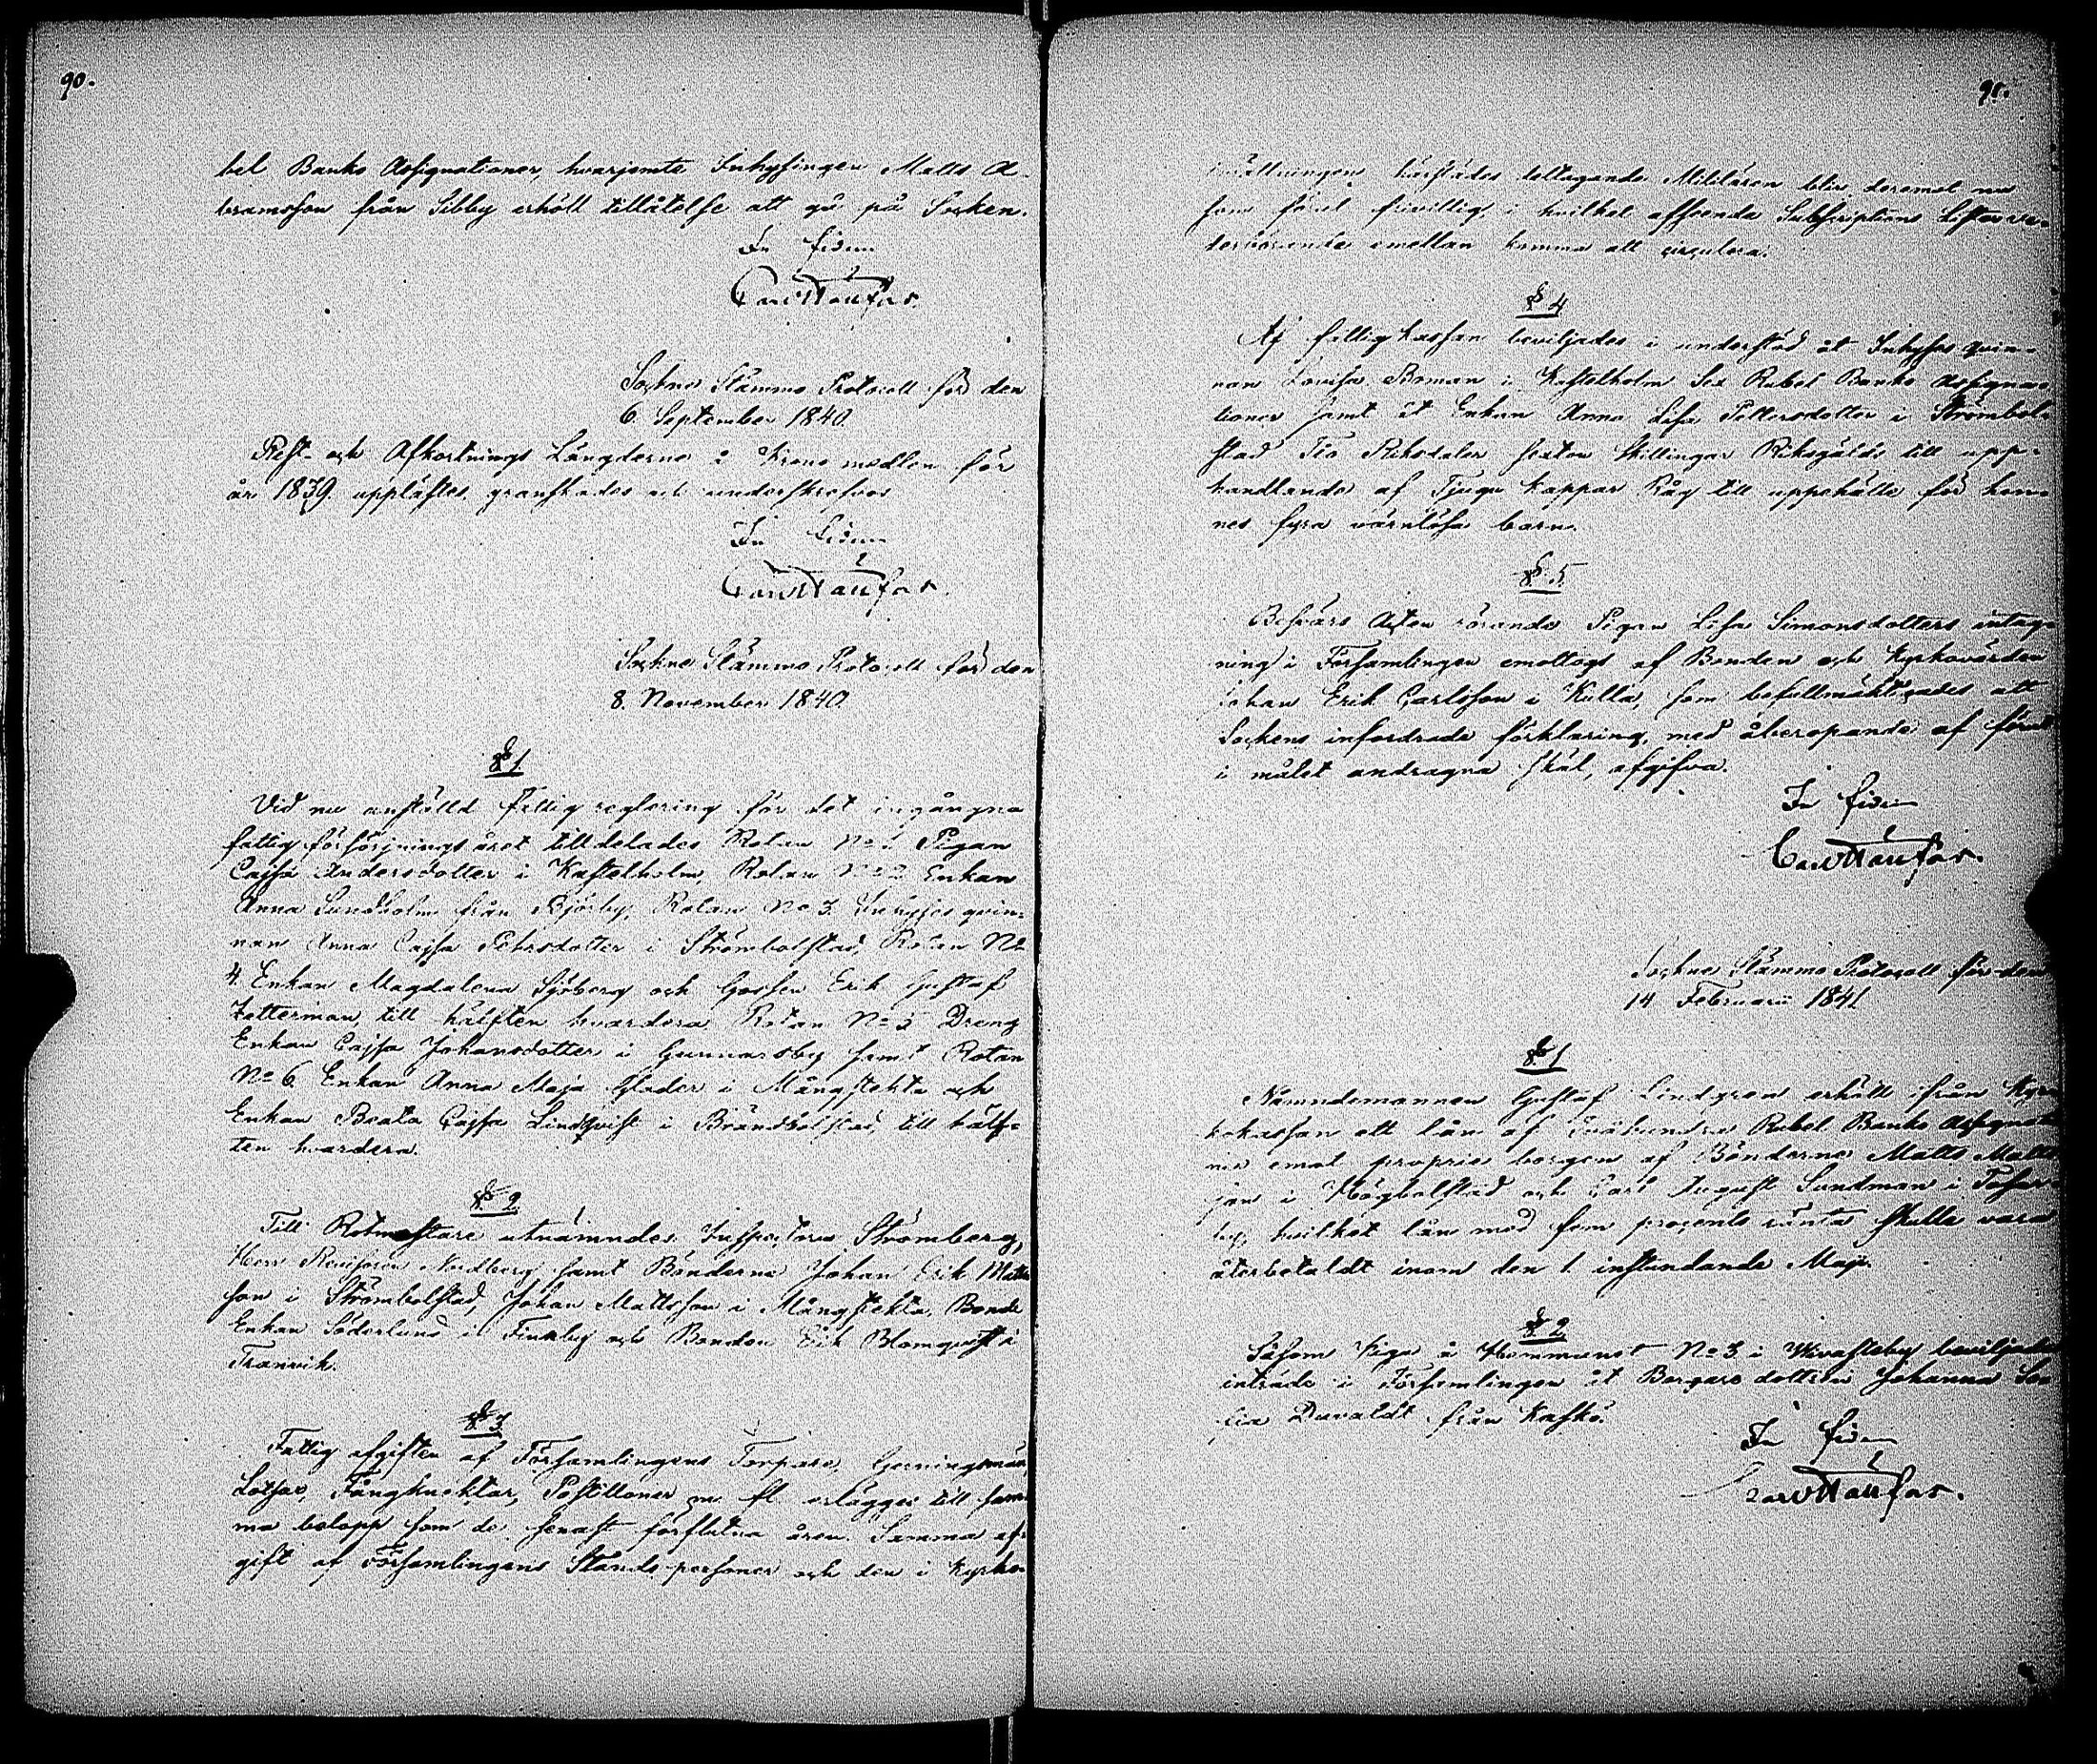 90.
bel Banko Assignationer, hvarjemte Inhysingen Matts A-
bramsson från Sibby erhöll tillåtelse att gå på Socken.
In fidem
Sockne Stämmo Protocoll för den
6. September 1840.
Rest- och Afkortnings Längderne å Krono medlen för
år 1839 upplästes, granskades och underskrefvos
In fidem
Sockne Stämmo Protocoll för den
8. November 1840.
§ 1.
Vid nu anstäld Fattig reglering för det ingångna
fattigförsörjnings året tilldelades Rotan No 1 Pigan
Cajsa Andersdotter i Kastelholm, Rotan No 2 Enkan
Anna Sundholm från Björby, Rotan No 3. Inhyses qvin-
nan Anna Cajsa Pehrsdotter i Strömbolstad, Rotan No
4. Enkan Magdalena Sjöberg och Gossen Erik Gustaf
Zetterman, till hälften hvardera Rotan No 5 Dreng
Enkan Cajsa Johansdotter i Gunnarsby samt Rotan
No 6 Enkan Anna Maja Glader i Mångstekta och
Enkan Beata Cajsa Lindqvist i Brändbolstad, till hälf-
ten hvardera.
§ 2
Till Rotmästare utnämndes Inspectoren Strömberg,
Herr Revisoren Nordberg samt Bönderne Johan Erik Matts
son i Strömbolstad, Johan Mattsson i Mångstekta, Bonde
Enkan Söderlund i Finnby och Bonden Erik Blomqvist i
Tranvik.
§ 3
Fattig afgiften af Församlingens Torpare, Gerningsmän,
Lotsar, Fångknektar, Postiljoner m. fl. erlägges till sam-
ma belopp som de senast förflutna åren. Samma af-
gift af Församlingens Stånds personer och den i Kyrko-
91.
inrättningen härstädes deltagande Militären blir deremot nu
som förut frivillig, i hvilket afseende Subscriptions Listor ve-
derbörande emellan komma att circulera.
§ 4
Af fattig kassan beviljades i understöd åt Inhyses qvin-
nan Lovisa Boman i Kastelholm Sex Rubel Banko Assigna-
tioner samt åt Enkan Anna Lisa Pettersdotter i Strömbol-
stad Tio Riksdaler sexton Skillingar Riksgälds till upp-
handlande af Tjugu kappar Råg till uppehälle för hen-
nes fyra värnlösa barn.
§ 5.
Besvärs Acten rörande Pigan Lisa Simonsdotters intag-
ning i Församlingen emottogs af Bonden och Kyrkovärden
Johan Erik Carlsson i Kulla, som befullmäktigades att
Sockens infordrade förklaring, med åberopande af förut
i målet andragna skäl, afgifva.
In fidem
Sockne Stämmo Protocoll för den
14 Februarii 1841
§ 1
Nämndemannen Gustaf Lindgren erhöll ifrån Kyr-
kokassan ett lån af Tvåhundra Rubel Banko Assignatio-
ner emot proprie borgen af Bönderne Matts Matts
son i Högbolstad och Carl August Sundman i Tosar-
by, hvilket lån med fem procents ränta skulle vara
återbetaldt inom den 1 instundande Maji.
§ 2
Såsom Piga å Hemmanet No 3 i Wivasteby beviljades
inträde i Församlingen åt Borgare dottren Johanna So-
fia Duvaldt från Kaskö.
In fidem